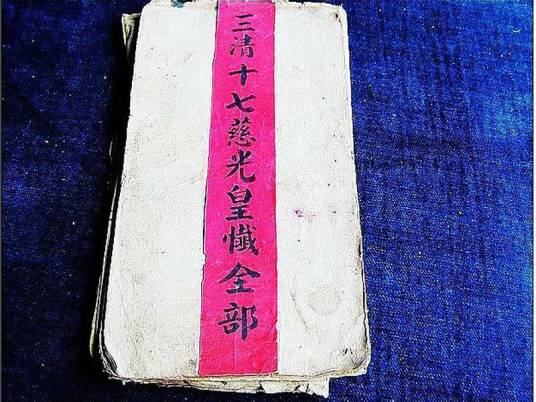 三清十七慈光皇懺全部